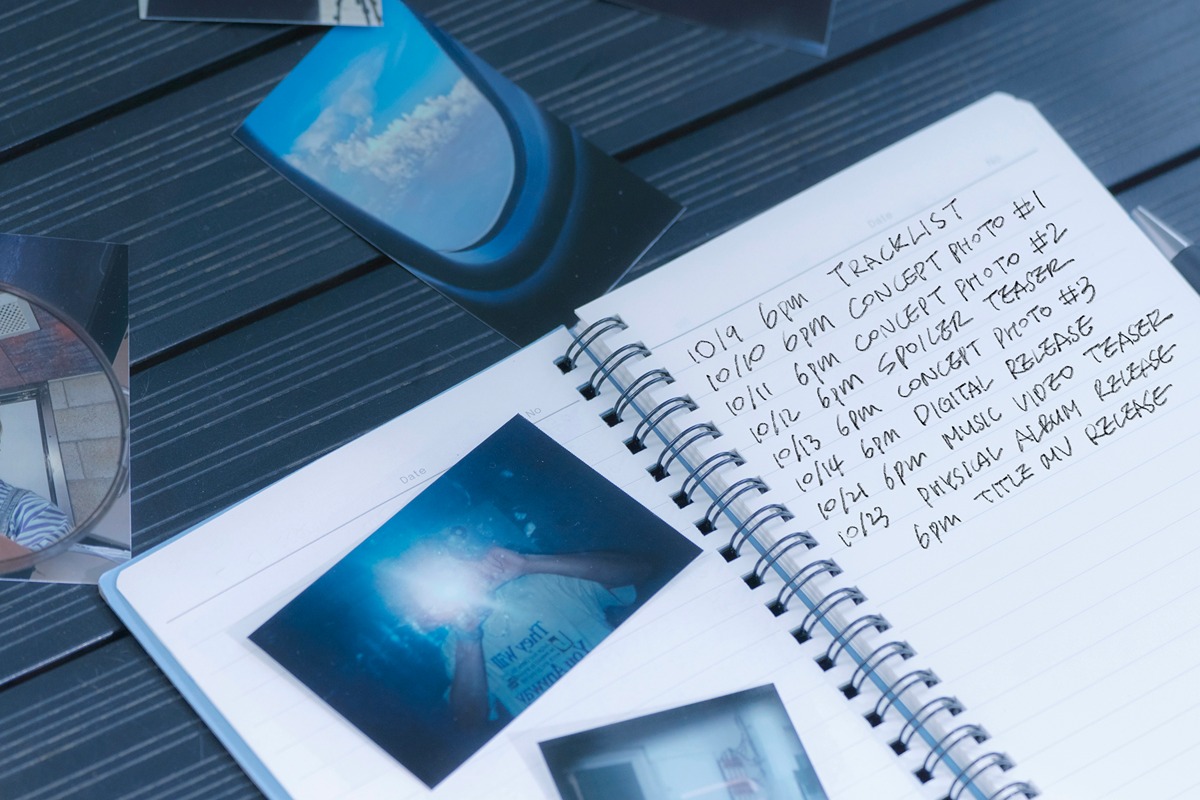 No
Date
10/9 6pm TRACKLIST
10/10 6pm CONCEPT PHOTO #1
10/11 6pm CONCEPT PHOTO #2
10/12 6pm SPOILER TEASER
10/13 6pm CONCEPT PHOTO #3
10/14 6pm DIGITAL RELEASE
10/21 6pm MUSIC VIDEO TEASER
10/23 PHYSICAL ALBUM RELEASE
6pm TITLE MV RELEASE
No
Date
They Will
You Anyway